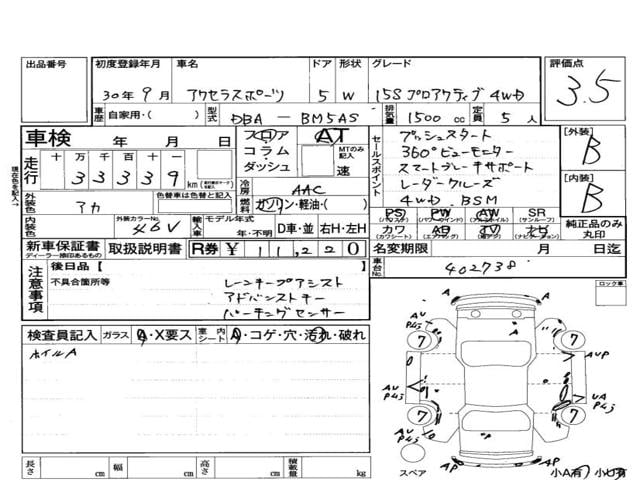 出品番号 初度登録年月 車名 ドア 形状 グレード 評価点
30年9月 アクセラスポーツ 5 W 15S プロアクティブ 4WD 3.5
車歴 自家用・( ) 型式 DBA － BM5AS 排気量 1500 cc 定員 5 人
車検 年 月 日 フロア AT セールスポイント プッシュスタート [外装]
コラム MTのみ記入 360°ビューモニター B
走行 十 万 千 百 十 一 ダッシュ 速 スマートブレーキサポート
3 3 3 3 9 km レーダークルーズ [内装]
現在色を記入 冷房 AAC 4WD BSM B
外装色 アカ 色替車は色替と記入 燃料 ガソリン・軽油・( ) PS PW AW SR
(パワステ) (パワーウインド) (アルミホイル) (サンルーフ)
内装色 外装カラーNo. 46V 輸入車 モデル年式 年・不明 D車・並 右H・左H カワ AB TV ナビ 純正品のみ丸印
(カワシート) (エアバッグ) (ナビゲーション)
新車保証書 取扱説明書 R券 ￥ 11,220 名変期限 月 日迄
ディーラー捺印あるもの
注意事項 後日品【 】 車台No. 402738
不具合箇所等 レーンキープアシスト ロック車
アドバンストキー
パーキングセンサー
検査員記入 ガラス A・X要ス 室内シート A・コゲ・穴・汚れ・破れ
ホイルA
AU P4j
7 7
AUP
AU P4j
UA P4j
7 7
AU P4j
AP AP
長さ cm 幅 cm 高さ cm 積載量 kg スペア 小A有 小U有